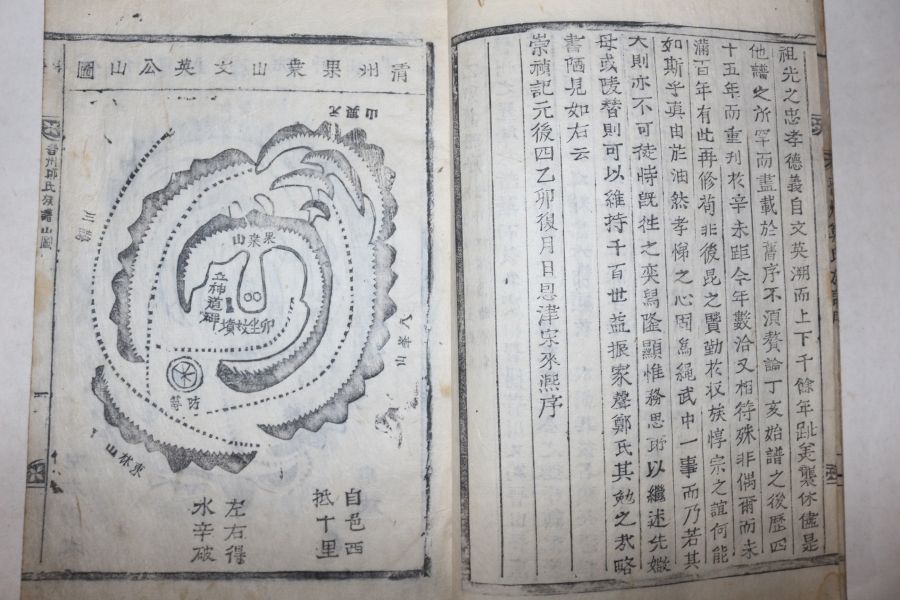 祖光之忠孝德義自文英溯而上下千餘年趾美襲休儘是
他譜之所罕而盡載於舊序不須贅論丁亥始譜之後歷四
十五年而重刊於辛未距今年數洽又相符殊非偶爾而未
滿百年有此再修苟非後昆之賢勤於收族惇宗之誼何能
如斯乎寘由於油然孝悌之心固爲繩武中一事而乃若其
大則亦不可徒恃旣徃之奕舃隆顯惟務思所以繼述先
母或陵替則可以維持千百世益振家聲鄭氏其勉之哉略
書陋見如右云
崇禎記元後四乙卯復月日恩津宋來熙序
淸州果桒山文英公山圖
元興山
果桒山
立神道碑
卯坐墳
八峯山
東林山
自邑西
抵十里
左右得
水辛破
鄭氏族譜山圖